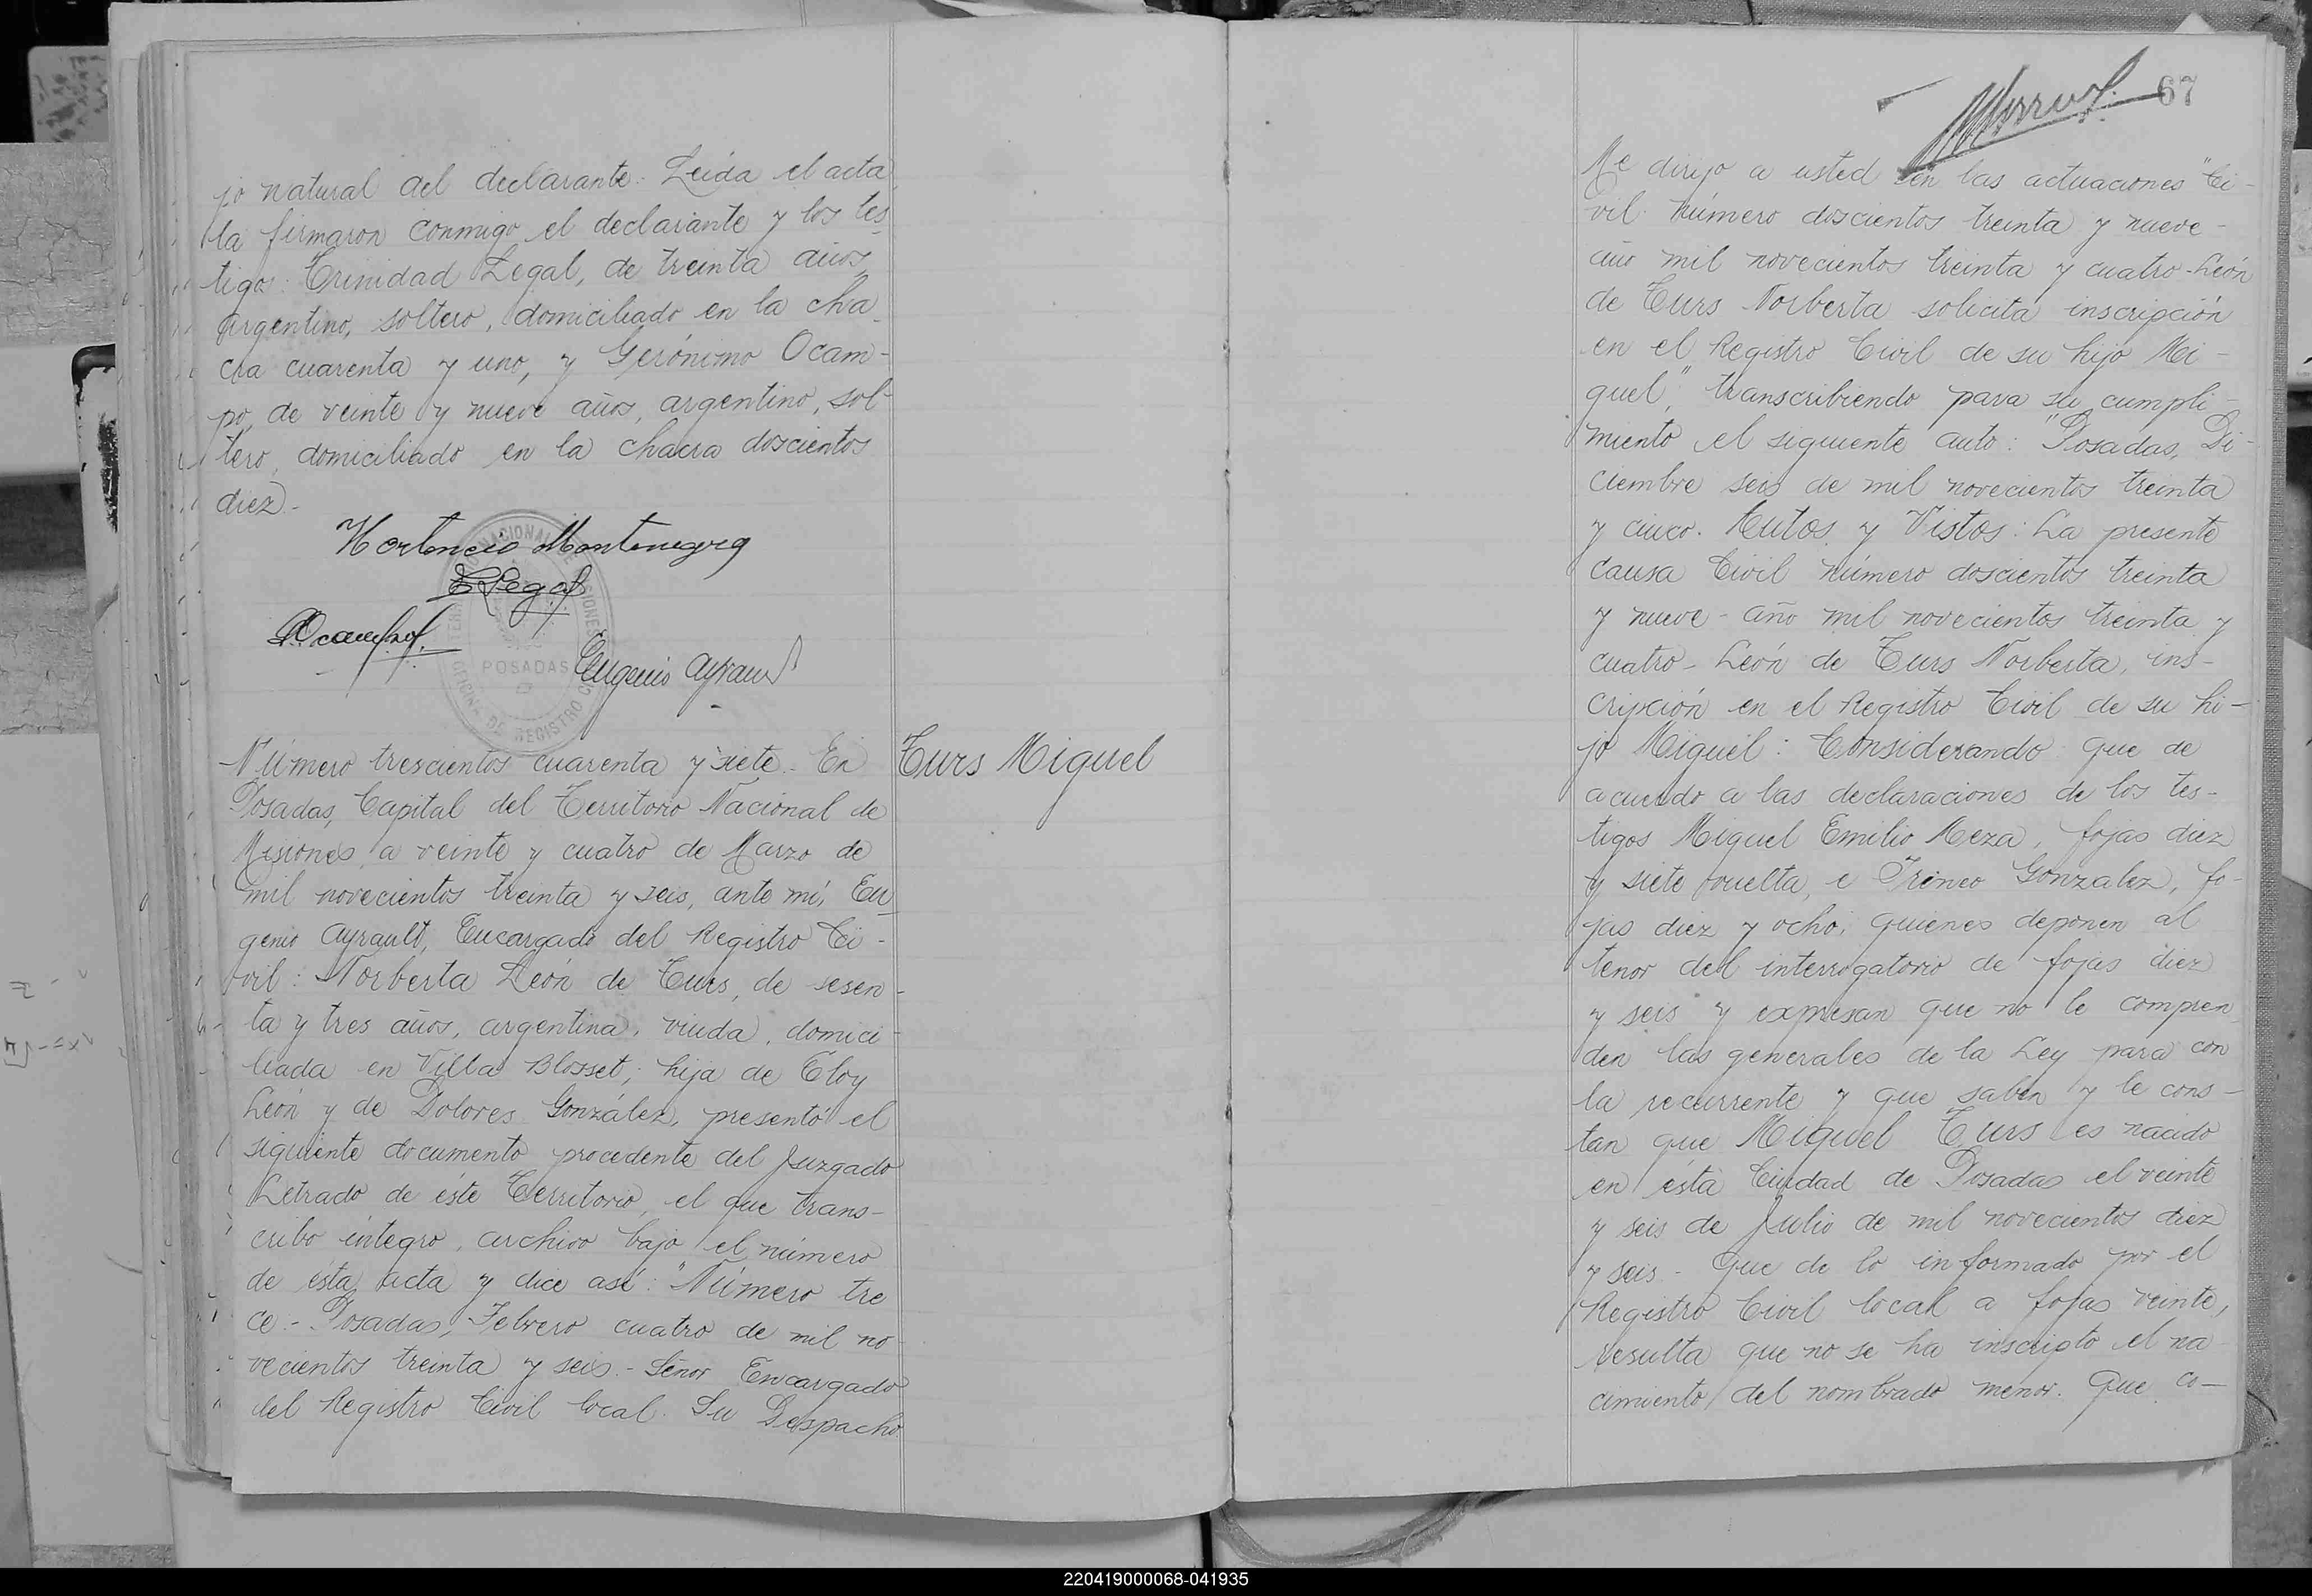 jo natural del declarante. Leída el acta
la firmaron conmigo el declarante y los tes
tigos: Trinidad Legal, de treinta años,
argentino, soltero, domiciliado en la cha
cra cuarenta y uno, y Gerónimo Ocam-
po, de veinte y nueve años, argentino, sol-
tero, domiciliado en la chacra doscientos
diez.-
Hortencio Montenegro
T Legal
Ocampo
Eugenio Ayrault
POSADAS
Número trescientos cuarenta y siete.- En
Posadas, Capital del Territorio Nacional de
Misiones, a veinte y cuatro de Marzo de
mil novecientos treinta y seis, ante mí, Eu
genio Ayrault, Encargado del Registro Ci-
vil: Norberta León de Turs, de sesen-
ta y tres años, argentina, viuda, domici-
liada en Villa Blosset; hija de Eloy
León y de Dolores González, presentó el
siguiente documento procedente del Juzgado
Letrado de éste Territorio, el que trans-
cribo íntegro, archivo bajo el número
de ésta acta y dice así: "Número tre
ce.- Posadas, Febrero cuatro de mil no-
vecientos treinta y seis.- Señor Encargado
del Registro Civil local. Su Despacho.
Turs Miguel
67
Me dirijo a usted en las actuaciones "Ci-
vil número doscientos treinta y nueve-
año mil novecientos treinta y cuatro-León
de Turs Norberta solicita inscripción
en el Registro Civil de su hijo Mi-
guel," transcribiendo para su cumpli-
miento el siguiente auto: "Posadas, Di-
ciembre seis de mil novecientos treinta
y cinco. Autos y Vistos: La presente
causa Civil número doscientos treinta
y nueve- año mil novecientos treinta y
cuatro- León de Turs Norberta, ins-
cripción en el Registro Civil de su hi-
jo Miguel: Considerando: que de
acuerdo a las declaraciones de los tes-
tigos Miguel Emilio Meza, fojas diez
y siete vuelta, e Irineo Gonzalez, fo-
jas diez y ocho, quienes deponen al
tenor del interrogatorio de fojas diez
y seis y expresan que no le compren
den las generales de la Ley para con
la recurrente y que saben y le cons-
tan que Miguel Turs es nacido
en ésta Ciudad de Posadas el veinte
y seis de Julio de mil novecientos diez
y seis.- Que de lo informado por el
Registro Civil local a fojas veinte,
resulta que no se ha inscripto el na-
cimiento del nombrado menor. Que co-
220419000068-041935